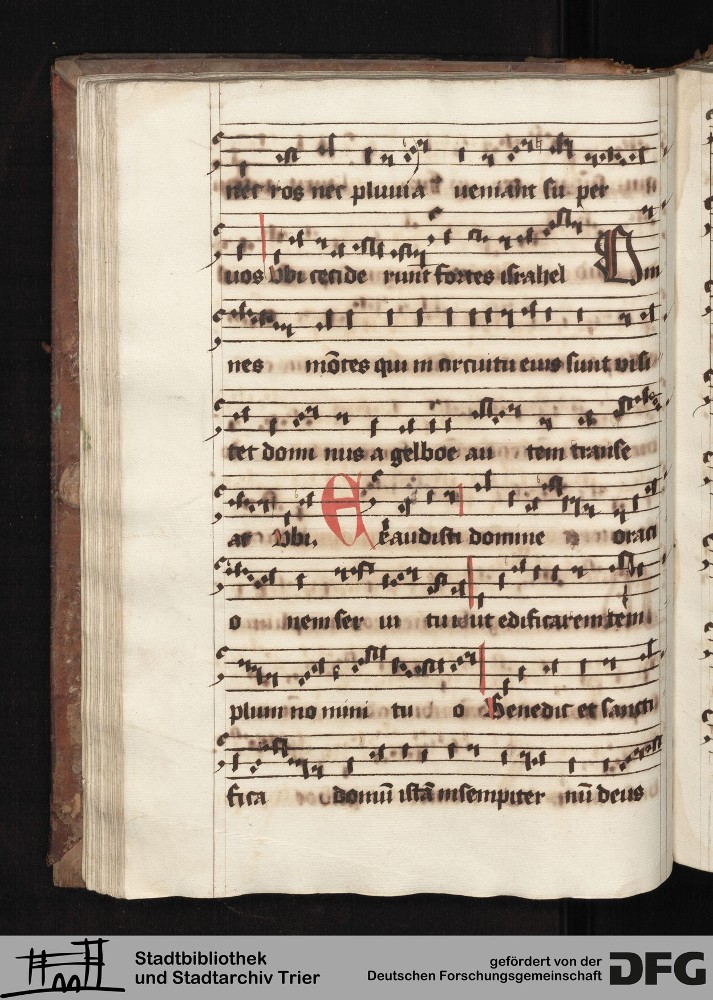 nec ros nec pluuia ueniant su per
uos Vbi cecide runt fortes israhel Om
nes mōtes qui in circuitu eius sunt uisi
tet domi nus a gelboe au tem transe
at Vbi. Exaudisti domine orati
o nem ser ui tui ut edificarem tem
plum no mini tu o Benedic et sancti
fica domū istā insempiter nū deus
Stadtbibliothek
und Stadtarchiv Trier
gefördert von der
Deutschen Forschungsgemeinschaft
DFG